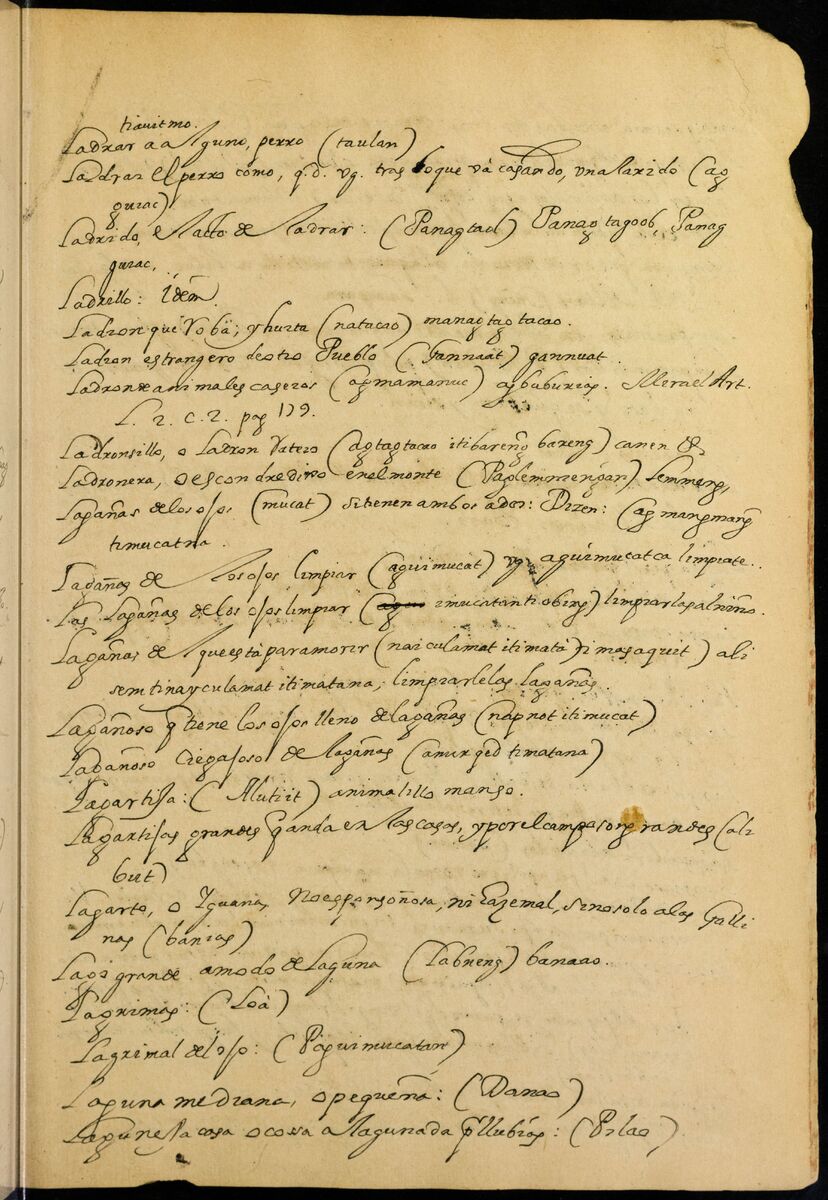 tiauitmo.
Ladrar a alguno, perro (taulan)
Ladrar el perro como, q.d. vg. tras lo que và casando, un alarido (ag
guiac)
Ladrido, el acto de ladrar: (Panagtaul) Panagtagoob, Panag
guiac,
Ladrillo: Idem.
Ladron que roba; y hurta (natacao) managtagtacao.
Ladron estrangero de otro Pueblo (Gannaat) gannuat.
Ladron de animales caseros (agmamanuc) agbuburias. Mira el Art.
L. 2. c. 2. pag 179.
Ladronsillo, o Ladron ratero (agtagtacao itibareng bareng) canen &
Ladronera, o escondredixo en el monte (Paglemmengan) lemmeng,
Lagañas de los ojos (mucat) si tienen ambos a dos: Dizen: (ag mangmang
timucatna.
Lagañas de los ojos limpiar (aguimucat) vg. aguimucatca limpiate.
Las Lagañas de los ojos limpiar (imucatan ti obing) limpiar las al niño.
Lagañas de el que està para morir (naiculamat iti matà ti masaquit) ali
semtinayculamat iti matana; limpiarle las lagañas.
Lagañoso q tiene los ojos lleno de lagañas (napnot iti mucat)
Lagañoso Ciegajoso de lagañas (amurqed ti matana)
Lagartija: (Alutiit) animalillo manso.
Lagartijas grandes q anda en las casas, y por el campo son grandes (ali
but)
Lagarto, o Iguana, No es ponsoñosa, ni haze mal, sino solo a las Galli
nas (banias)
Lago grande a modo de Laguna (Tabneng) banaao.
Lagrimas: (Loà)
Lagrimal del ojo: (Paguimucatan)
Laguna mediana, o pequeña: (Danao)
Lagunella casa o cossa alagunada p llubias: (Pilao)